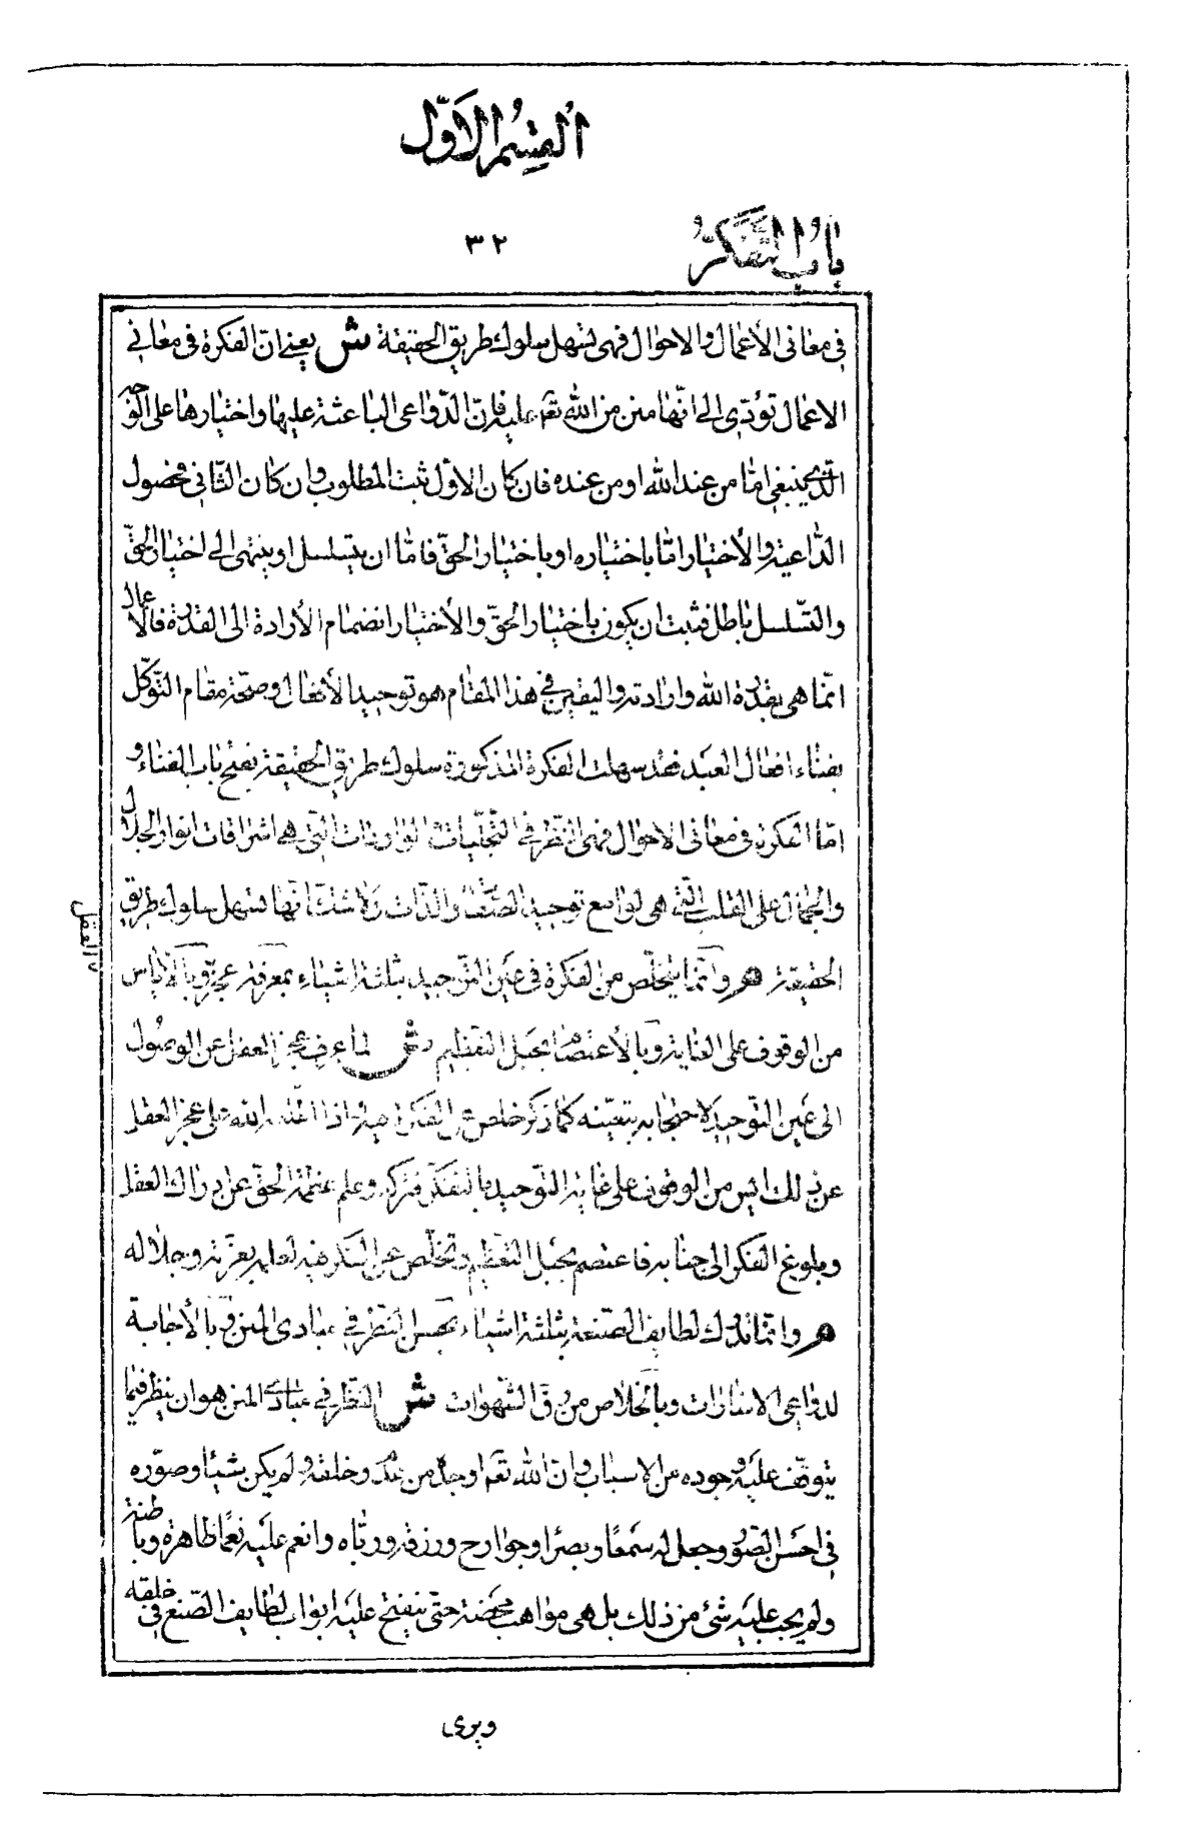 القسم الاول
باب التفكر
٣٢
فى معانى الأعمال والاحوال فهى تسهل سلوك طريق الحقيقة ش يعنى ان الفكرة فى معانى
الاعمال تؤدّى الى انّها منن من الله تعم عليه فانّ الدّواعى الباعثة عليها واختيارها على الوجه
الّذى ينبغى امّا من عند الله او من عنده فان كان الاوّل ثبت المطلوب وان كان الثّانى فحصول
الدّاعية والأختيار امّا باختياره او باختيار الحقّ فامّا ان يتسلسل او ينتهى الى اختيار الحقّ
والتّسلسل باطل فثبت ان يكون باختيار الحقّ والأختيار انضمام الأرادة الى القدرة فالاعمال
انّما هى بقدرة الله وارادته واليقين فى هذا المقام هو توحيد الأفعال وصحّة مقام التّوكّل
بفناء افعال العبد فقد سهلت الفكرة المذكورة سلوك طريق الحقيقة بفتح باب الفناء و
امّا الفكرة فى معانى الاحوال فهى النّظر فى التّجلّيات والواردات الّتى هى اشراقات انوار الجلال
والجمال على القلب الّتى هى لوامع توحيد الصّفات والذّات ولا شكّ انّها تسهل سلوك طريق
الحقيقة هر وانّما يتخلّص من الفكرة فى عين التّوحيد بثلثة اشياء بمعرفة عجز وبالأياس
العقل
من الوقوف على الغاية وبالأعتصام بحبل التعظيم ش لما عرف عجز العقل عن الوصول
الى عين التّوحيد لاحتجابه بتعيّنه كما ذكر خلص عن الفكرة فيه واذا الله على عجز العقل
عن ذلك ايس من الوقوف على غاية التّوحيد بالتفكر فتركه وعلم عظمة الحقّ عن ادراك العقل
وبلوغ الفكر الى جنابه فاعتصم بحبل التعظيم وتخلّص عن الفكر فيه لعلمه بعزّته وجلاله
هر وانّما تدرك لطايف الصّنعة بثلثة اشياء بحسن النّظر فى مبادى المنن وبالأجابة
لدواعى الاشارات وبالخلاص من رقّ الشّهوات ش النّظر فى مبادى المنن هو ان ينظر فيما
يتوقّف عليه وجوده من الاسباب وانّ الله تعم اوجده من عدم وخلقه ولم يكن شيئا وصوّره
فى احسن الصّور وجعل له سمعًا وبصرًا وجوارح ورزقه وربّاه وانعم عليه نعمًا ظاهرة وباطنة
ولم يجب عليه شئ من ذلك بل هى مواهب محضة حتّى ينفتح عليه ابواب لطايف الصّنع فى خلقه
ويرى